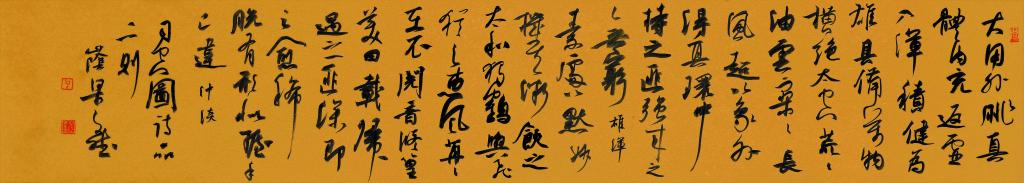 大用外腓真
體内充返虚
入渾積健為
雄具備萬物
横絶太空荒〻
油雲寥〻長
風超以象外
得其環中
持之匪強来之
〻無窮 雄渾
素處以默妙
機其微飲之
太和獨鶴與飛
猶之惠風苒〻
在衣閲音修篁
美曰載歸
遇之匪深即
之愈稀
脱有形似握手
已違 沖淡
司空圖詩品
二則